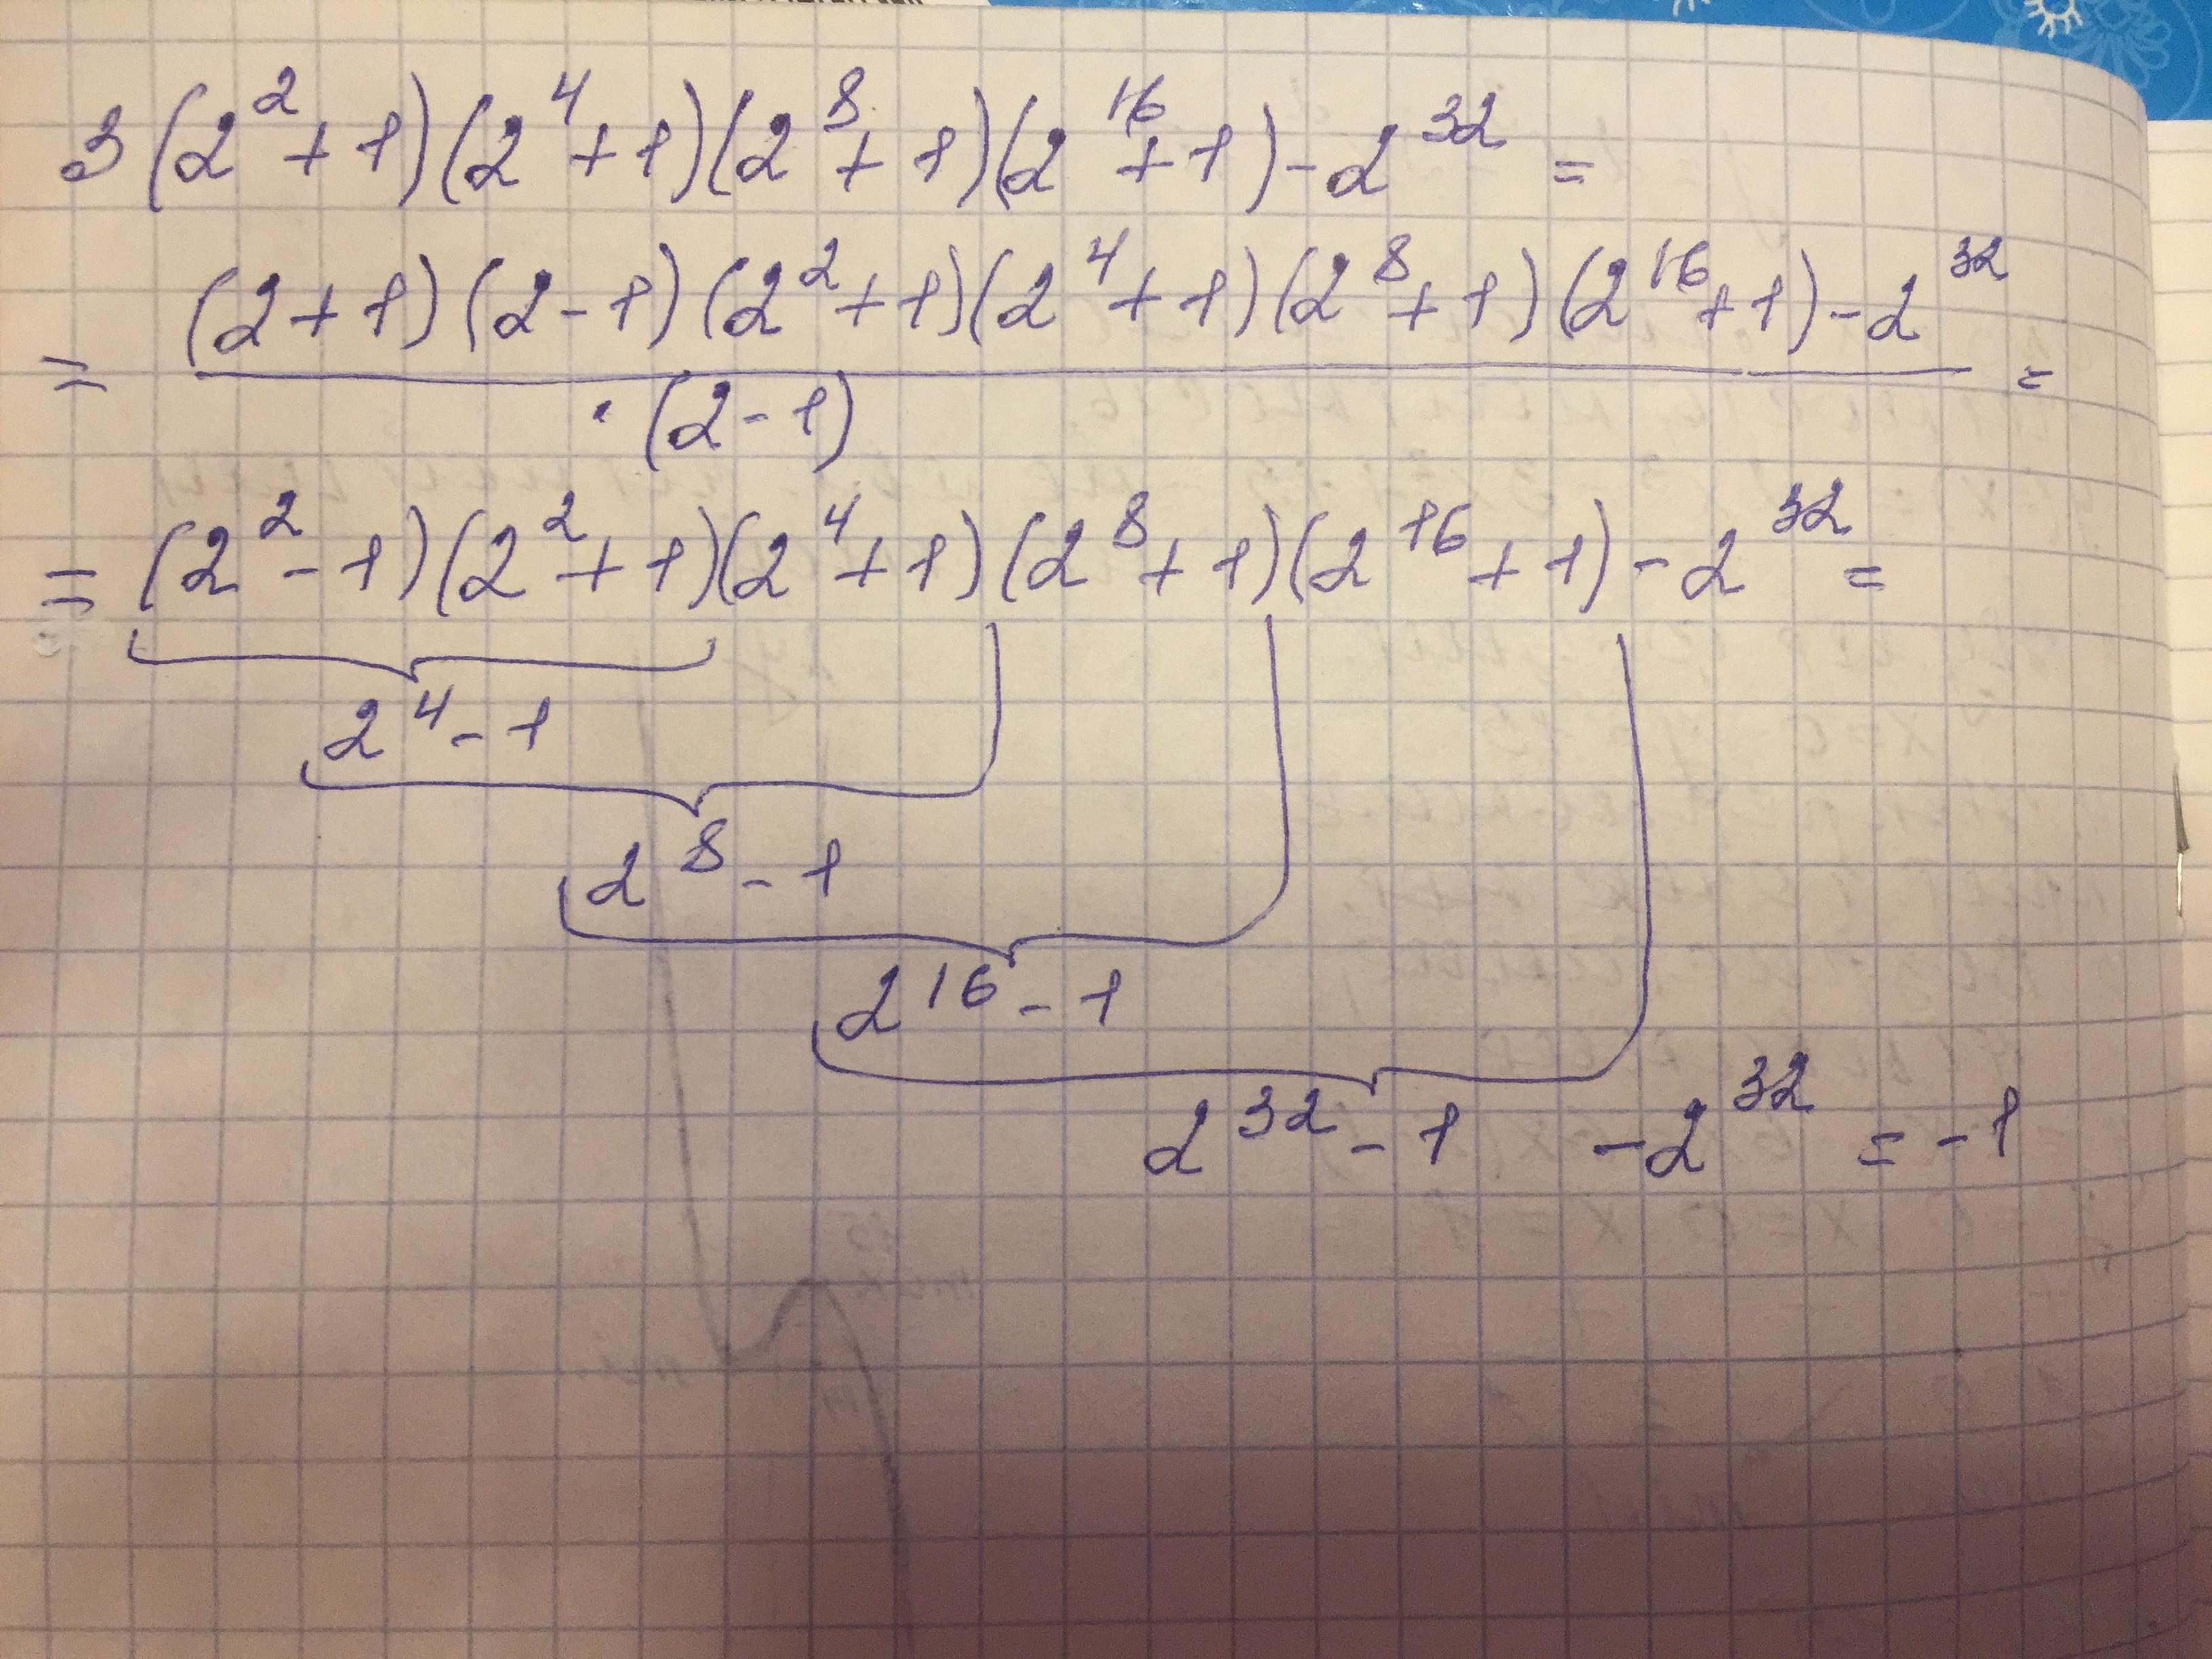 3(2²+1)(2⁴+1)(2⁸+1)(2¹⁶+1)-2³²=
= (2+1)(2-1)(2²+1)(2⁴+1)(2⁸+1)(2¹⁶+1)-2³² =
(2-1)
=(2²-1)(2²+1)(2⁴+1)(2⁸+1)(2¹⁶+1)-2³²=
2⁴-1
2⁸-1
2¹⁶-1
2³²-1 -2³² = -1